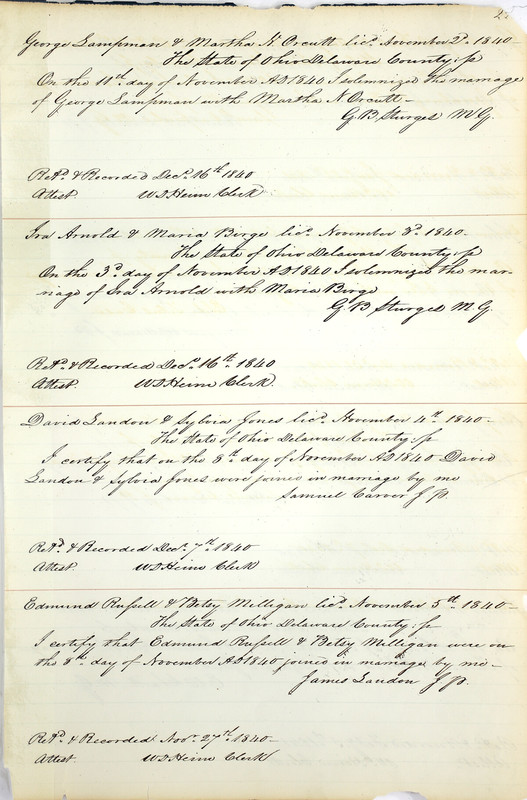 George Lampman & Martha N. Orcutt licd. November 2d. 1840–
The State of Ohio Delaware County; ss
On the 11th. day of November AD 1840 I solemnized the marriage
of George Lampman with Martha N Orcutt–
G. B Sturges M G.
Retd. & Recorded Decr. 16th 1840
Attest. W D Heim Clerk
Ira Arnold & Maria Birge licd. November 3d. 1840–
The State of Ohio Delaware County; ss
On the 3d. day of November AD 1840 I solemnized the mar-
riage of Ira Arnold with Maria Birge
G. B Sturges M G.
Retd. & Recorded Decr. 16th. 1840
Attest. W D Heim Clerk.
David Landon & Sylvia Jones licd. November 4th. 1840–
The State of Ohio Delaware County; ss
I certify that on the 8th. day of November AD 1840 David
Landon & Sylvia Jones were joined in marriage by me
Samuel Carver J P.
Retd. & Recorded Decr. 7th. 1840
Attest. W D Heim Clerk
Edmund Russell & Betsy Milligan licd. November 5th. 1840–
The State of Ohio Delaware County; ss
I certify that Edmund Russell & Betsy Milligan were on
the 8th. day of November AD 1840 joined in marriage by me–
James Landon J P.
Retd. & Recorded Novr. 27th. 1840–
Attest. W D Heim Clerk